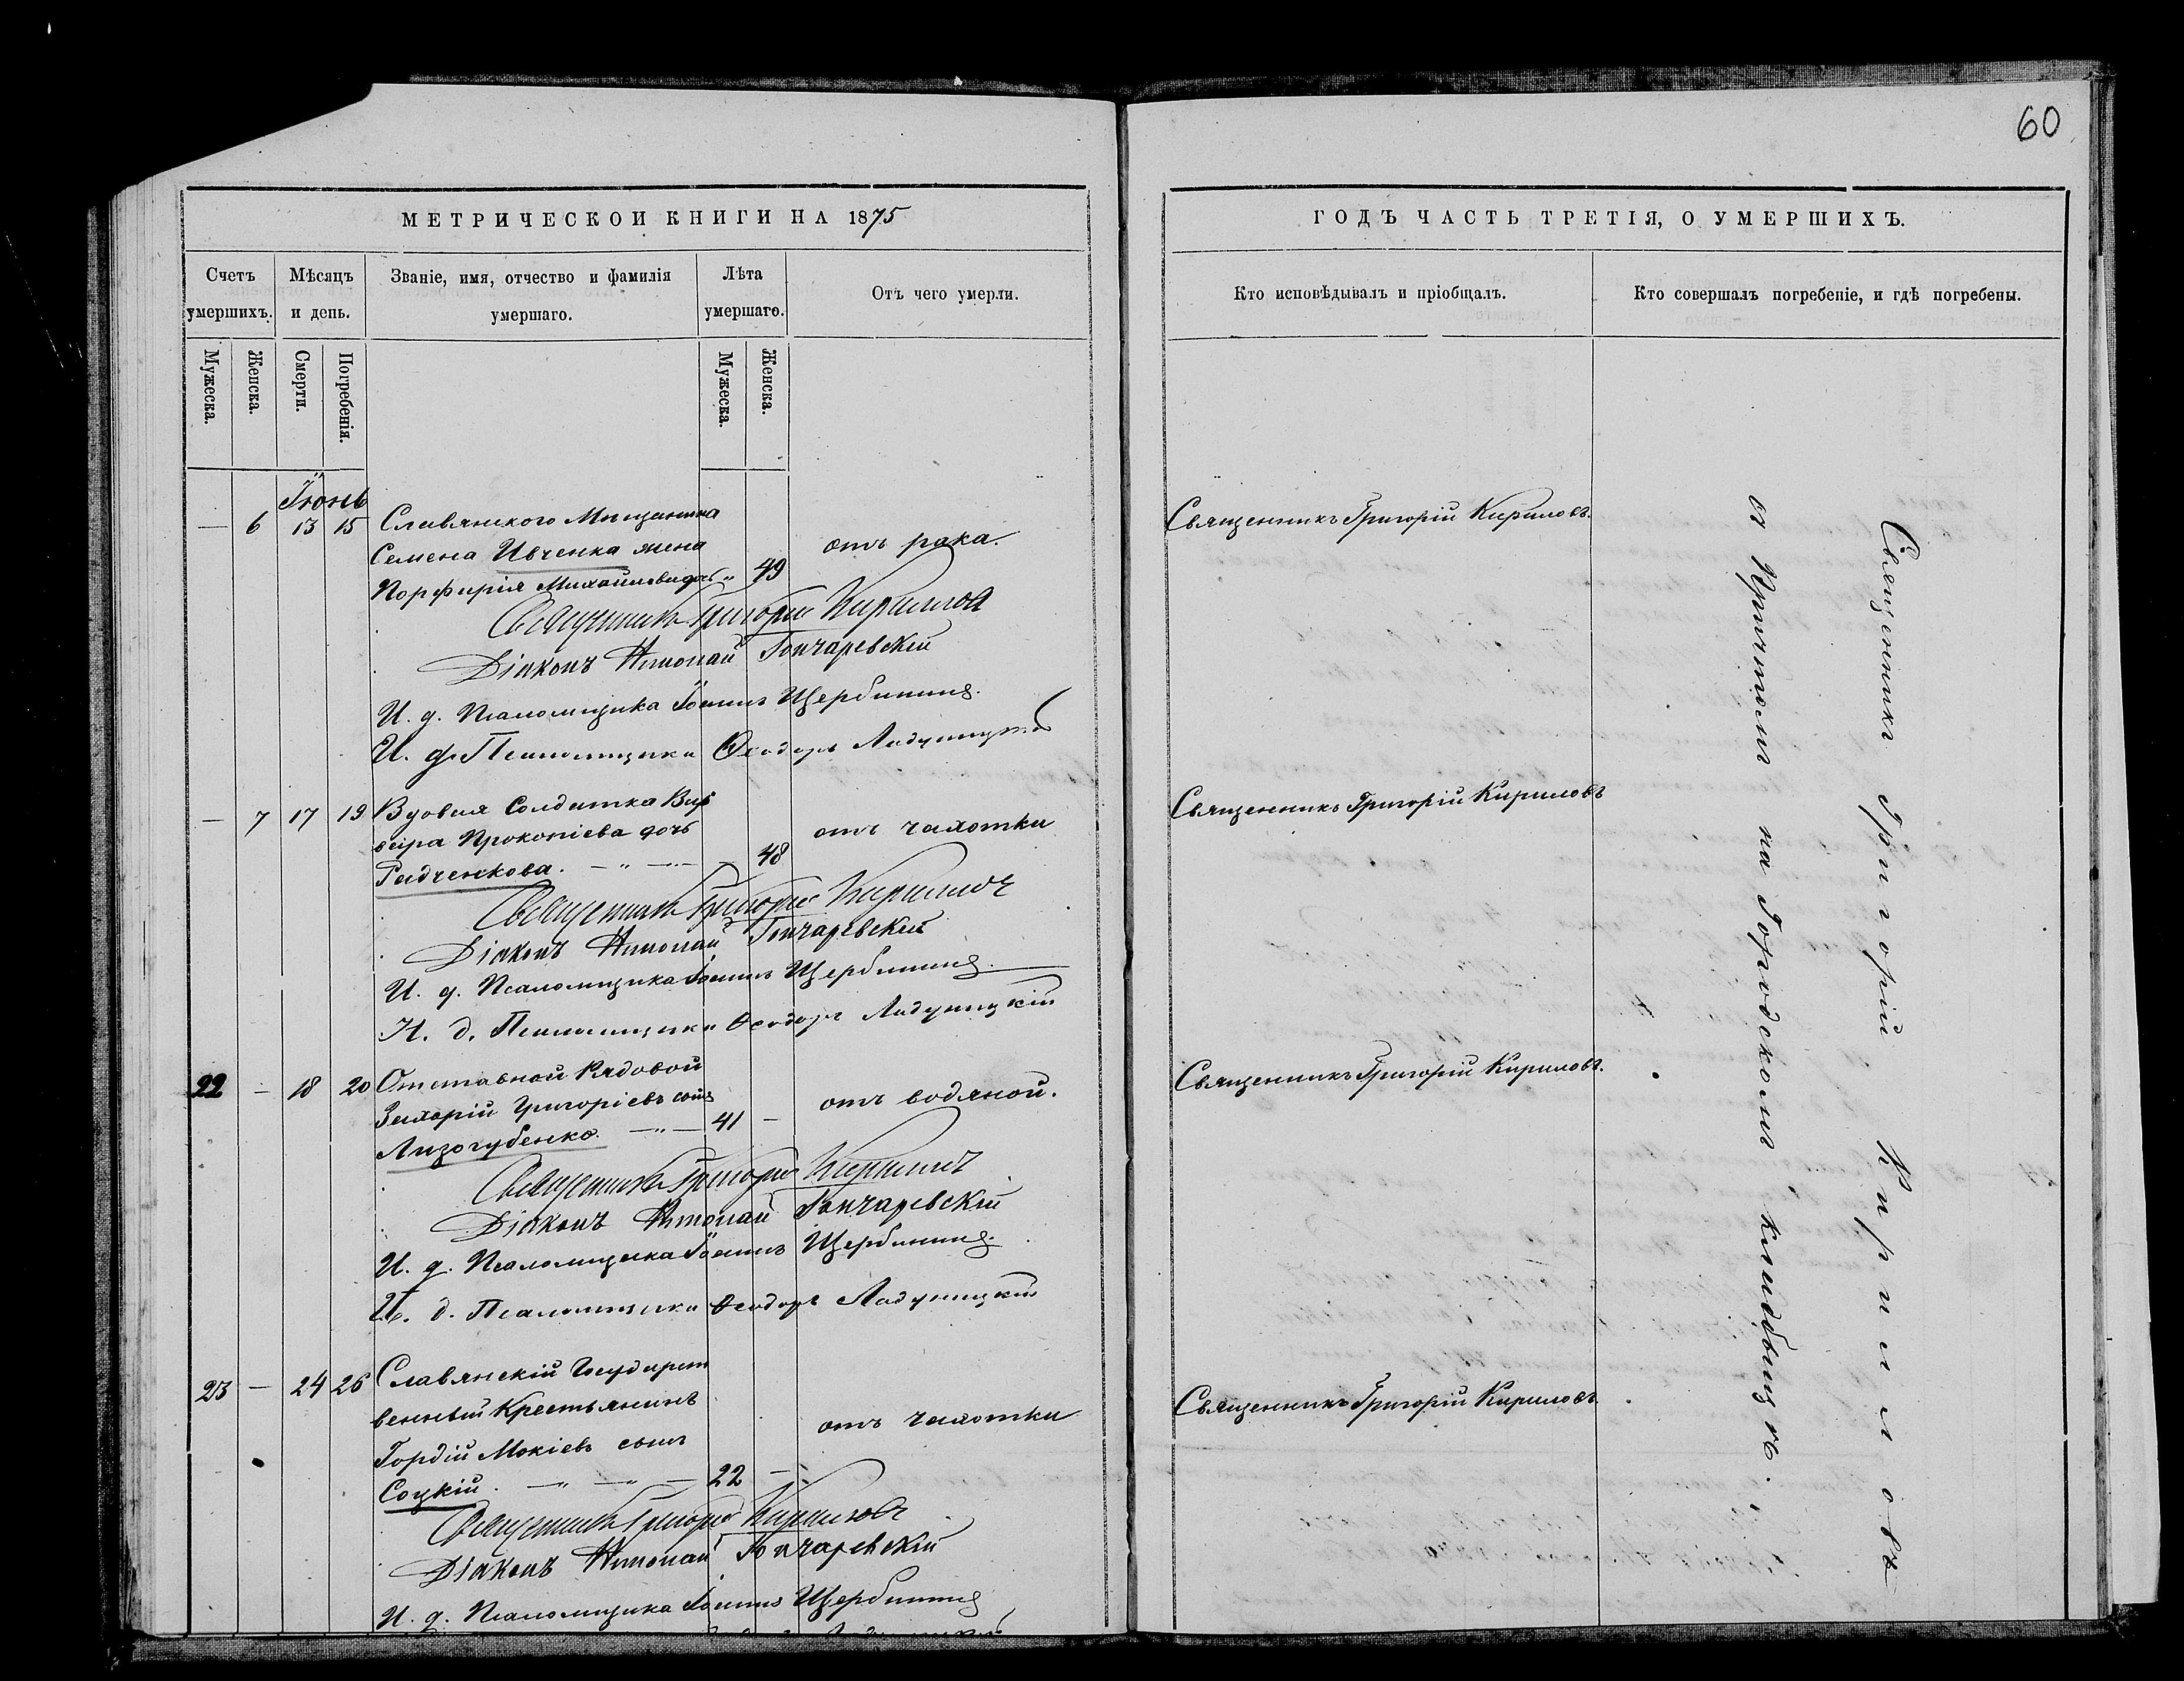 60
МЕТРИЧЕСКОЙ КНИГИ НА 1875
Счетъ умершихъ.
Мѣсяцъ и день.
Званіе, имя, отчество и фамилія умершаго.
Лѣта умершаго.
Отъ чего умерли.
Мужеска.
Женска.
Смерти.
Погребенія.
Мужеска.
Женска.
Іюнь
— 6 13 15 Славянского Мещанина
Семена Ивченка жена
Порфирія Михайлова дочь " 49 отъ рака.
Священникъ Григорій Кириловъ
Діаконъ Николай Гончаревскій
И. д. Псаломщика Іоаннъ Щербининъ.
И. д. Псаломщика Ѳеодоръ
— 7 17 19 Вдовая Солдатка Вар
вара Прокопіева дочь
Радченкова. — " — 48 отъ чахотки
Священникъ Григорій Кириловъ
Діаконъ Николай Гончаревскій
И. д. Псаломщика Іоаннъ Щербининъ.
И. д. Псаломщика Ѳеодоръ
22 — 18 20 Отставной Рядовой
Захарій Григоріевъ сынъ
Лизогубенко. — " — 41 — отъ водяной.
Священникъ Григорій Кириловъ
Діаконъ Николай Гончаревскій
И. д. Псаломщика Іоаннъ Щербининъ.
И. д. Псаломщика Ѳеодоръ
23 — 24 26 Славянскій Государст
венный Крестьянинъ
Гордій Мокіевъ сынъ
Соцкій. — " — " — 22 — отъ чахотки
Священникъ Григорій Кириловъ
Діаконъ Николай Гончаревскій
И. д. Псаломщика Іоаннъ Щербининъ
ГОДЪ ЧАСТЬ ТРЕТІЯ, О УМЕРШИХЪ.
Кто исповѣдывалъ и пріобщалъ.
Кто совершалъ погребеніе, и гдѣ погребены.
Священникъ Григорій Кириловъ.
Священникъ Григорій Кириловъ
Священникъ Григорій Кириловъ.
Священникъ Григорій Кириловъ.
Священникъ Григорій Кириловъ
съ Причтомъ на Городскомъ кладбищѣ.